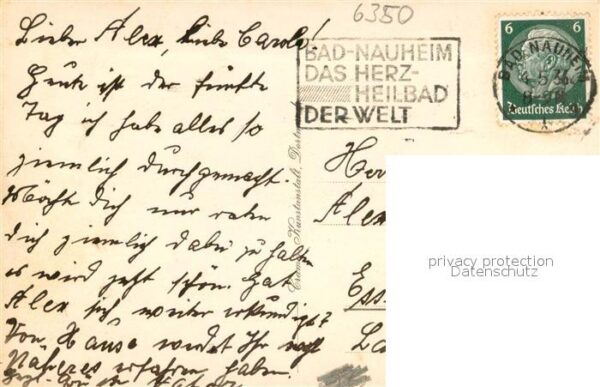 6350
Lieber Alex, liebe Carola!
Heute ist der fünfte
Tag ich habe alles so
ziemlich durchgemacht.
Möcht dich nur
dich ziemlich dabei zu halten
es wird jetzt schön. Hat
Alex sich weiter erkundigt?
Von Hause werdet Ihr wohl
Näheres erfahren haben.
BAD-NAUHEIM
DAS HERZ-
HEILBAD
DER WELT
6 6
BAD-NAUHEIM
Deutsches Reich
Cramers Kunstanstalt, Dortmund
Her
Alex
Ess
La
privacy protection
Datenschutz